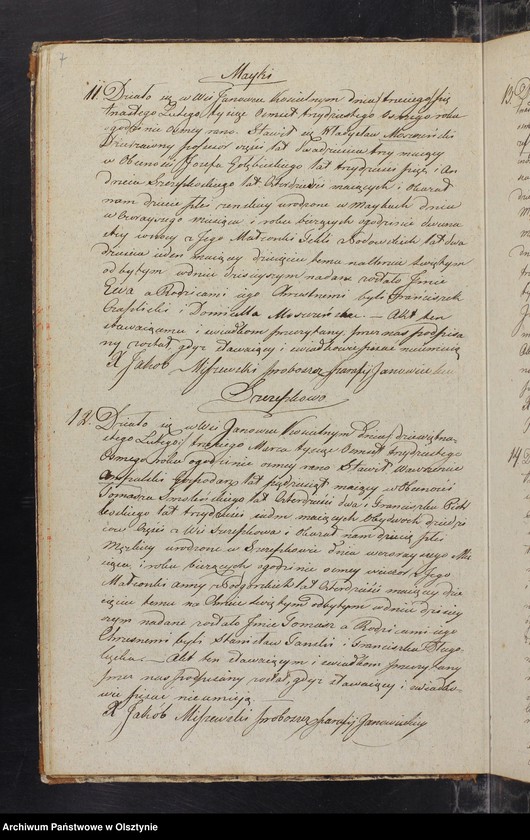 7
Mayki
11. Działo się w Wsi Janowie Kościelnym dnia
Lutego tysiąc Osmset trzydziestego roku
o godzinie Osmey rano. Stawił się Władysław
części lat dwadzieścia trzy maiący
w Obecności Józefa Gołębieckiego lat trzydzieści i An
drzeia lat czterdzieści maiących i Okazał
nam dziecie płci zenskiey urodzone w Maykach dnia
wczorayszego miesiąca i roku bieżących o godzinie dwuna
stey w nocy z Jego Małżonki Tekli z lat dwa
dzieścia ieden maiącey dziecięciu temu na Chrzcie świętym
odbytym w dniu dzisieyszym nadane zostało Jmie
Ewa a Rodzicami iego Chrzestnemi byli Franciszek
i Domicella — Akt ten
stawaiącemu i swiadkom przeczytany, przez nas podpisa
ny został gdyz stawaiący i swiadkowie pisac nieumieią
X Jakób Miszewski proboszcz parafij Janowieckiey
Szczepkowo
12. Działo się w Wsi Janowie Kościelnym dnia dziewiętna
stego Lutego / trzeciego Marca tysiąc Osmset trzydziestego
Osmego roku o godzinie osmey rano Stawił Wawrzeniec
gospodarz lat piędziesiąt maiący w Obecności
Tomasza lat Czterdzieści dwa i Franciszka Piotr
kowskiego lat trzydzieści siedm maiących Obydwoch dziedzi
ców Części z Wsi Szczepkowa i Okazał nam dziecię płci
Męzkiey urodzone w Szczepkowie dnia wczorayszego Mie
siąca i roku bieżących o godzinie osmey wieczor z Jego
Małżonki Anny z lat Czterdzieści maiącey dzie
cięciu temu na Chrzcie świętym odbytym w dniu dzisiey
szym nadane zostało Jmie Tomasz a Rodzicami iego
Chrzesnemi byli Stanisław i Franciszka Długo
łęcka — Akt ten stawaiącym i swiadkom przeczytany
przez nas podpisany został, gdyz stawaiący i swiadko
wie pisac nieumieią
X Jakób Miszewski proboszcz parafij Janowieckiey
13.
14.
Archiwum Państwowe w Olsztynie